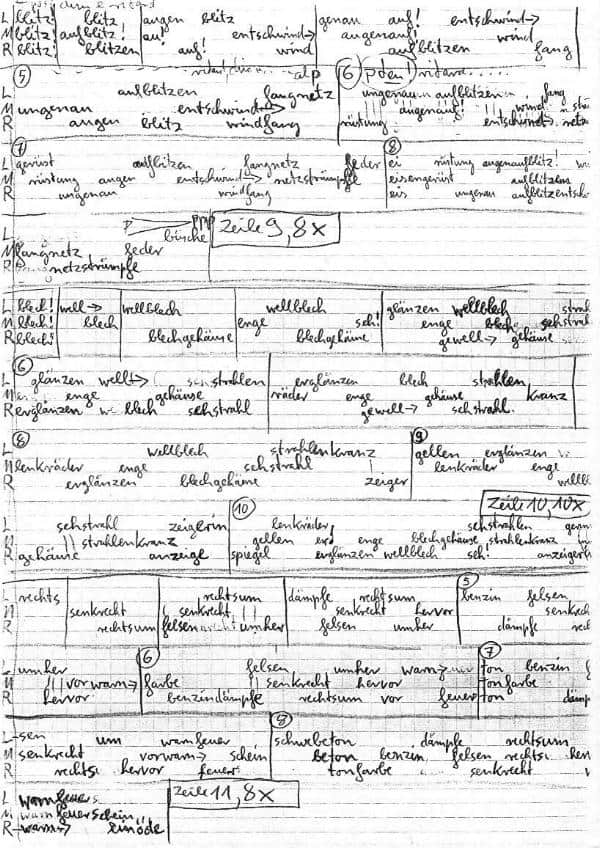 L blitz! blitz augen blitz genau auf! entschwind→
M blitz! aufblitz! au! entschwind→ augenauf! wind
R blitz! blitzen auf! wind aufblitzen fang
⑤ alp ⑥ pdent ritard.....
L aufblitzen fangnetz ungenau aufblitzen fang
M ungenau entschwind→ augenauf! wind
R augen blitz windfang rüstung entschwind→ netz
⑦ ⑧
L gerüst aufblitzen fangnetz feder ei rüstung augenaufblitz!
M rüstung augen entschwind→ netzstrümpfe eisengerüst aufblitzen
R ungenau windfang eis ungenau aufblitzentsch
L büsche Zeile 9, 8x
M fangnetz feder
R netzstrümpfe
L blech! well→ wellblech wellblech glänzen wellblech strahl
M blech! blech enge seh! enge blech sehstrahl
R blech! blechgehäuse blechgehäuse gewell→ gehäuse
⑥
L glänzen wellt→ strahlen erglänzen blech strahlen
M enge gehäuse räder enge gehäuse kranz
R erglänzen blech sehstrahl gewell→ sehstrahl.
⑧ ⑨
L wellblech strahlenkranz gellen erglänzen
M lenkräder enge sehstrahl lenkräder enge
R erglänzen blechgehäuse zeiger wellbl
⑩ Zeile 10, 10x
L sehstrahl zeigerin lenkräder sehstrahlen
M strahlenkranz gellen enge blechgehäuse strahlenkranz
R gehäuse anzeige spiegel erglänzen wellblech seh! anzeiger
⑤
L rechts rechtsum dämpfe rechtsum benzin felsen
M senkrecht senkrecht senkrecht hervor senkrech
R rechtsum felsen umher felsen umher dämpfe rec
⑥ ⑦
L umher felsen umher warn→ ton benzin
M vorwarn→ farbe senkrecht hervor tonfarbe
R hervor benzindämpfe rechtsum vor feuer ton dämp
⑧
L sen um warnfeuer schwebeton dämpfe rechtsum
M senkrecht vorwarn→ schein beton benzin felsen rechts. her
R rechts. hervor feuer. tonfarbe senkrecht
L warnfeuers Zeile 11, 8x
M warnfeuerschein
R warn→ einöde